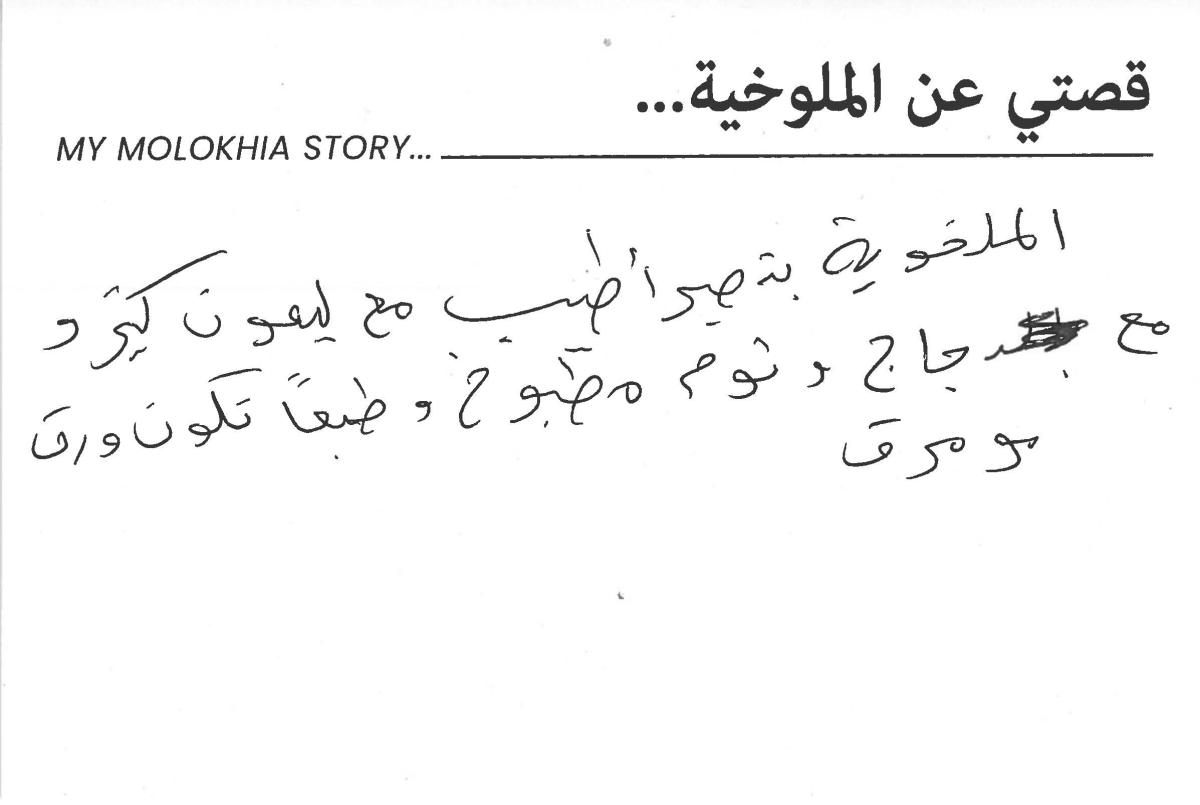 قصتي عن الملوخية...
MY MOLOKHIA STORY...
الملخوية بتصير أطيب مع ليمون كثير و
مع جاج و ثوم مطبوخ و طبعاً تكون ورق
مو مرق